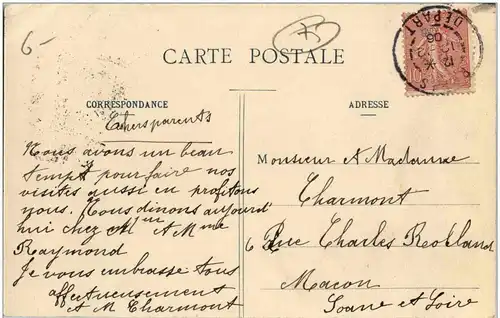 6-
75
CARTE POSTALE
DÉPART
12 K
06
10
CORRESPONDANCE
ADRESSE
Cchers parents
Nous avons un beau
tempst pour faire nos
visites aussi en profitons
nous. Nous dinons aujourd'
hui chez Mr et A Mme
Raymond
Je vous embrasse tous
affectueusement
et M Charmont
Monsieur et Madame
Charmont
6 Rue Charles Rolland
Macon
Soane et Loire